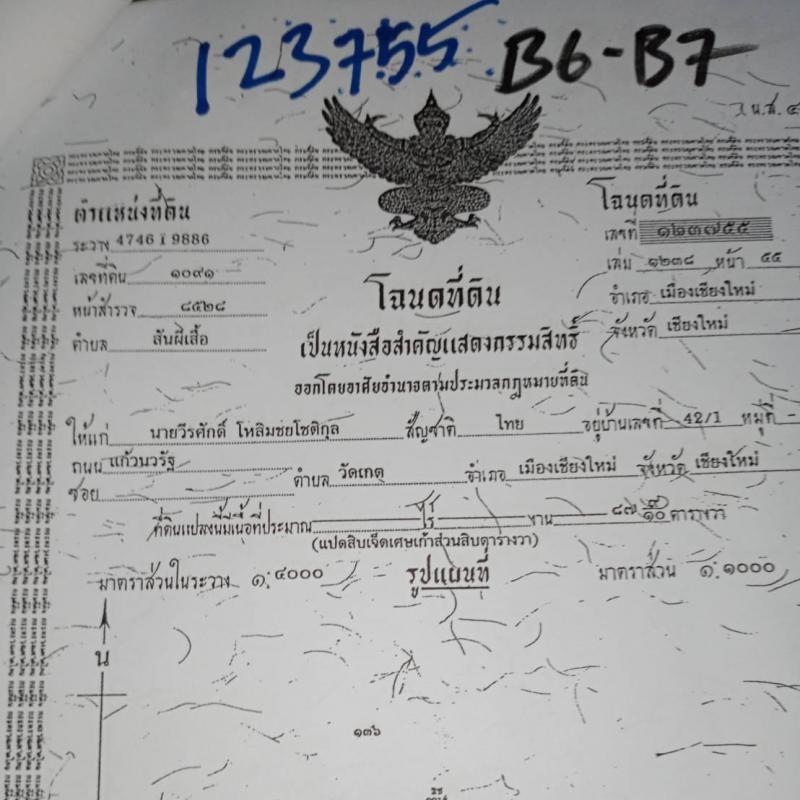 123755 B6-B7
น.ส. ๔
ตำแหน่งที่ดิน
ระวาง 4746 I 9886
เลขที่ดิน ๑๐๙๑
หน้าสำรวจ ๘๕๒๘
ตำบล สันผีเสื้อ
โฉนดที่ดิน
เลขที่ ๑๒๓๗๕๕
เล่ม ๑๒๓๘ หน้า ๕๕
อำเภอ เมืองเชียงใหม่
จังหวัด เชียงใหม่
โฉนดที่ดิน
เป็นหนังสือสำคัญแสดงกรรมสิทธิ์
ออกโดยอาศัยอำนาจตามประมวลกฎหมายที่ดิน
ให้แก่ นายวีรศักดิ์ โหลิมชยโชติกุล สัญชาติ ไทย อยู่บ้านเลขที่ 42/1 หมู่ที่ -
ถนน แก้วนวรัฐ
ซอย ตำบล วัดเกต อำเภอ เมืองเชียงใหม่ จังหวัด เชียงใหม่
ที่ดินแปลงนี้มีเนื้อที่ประมาณ ไร่ งาน ๘๗ ๙/๑๐ ตารางวา
(แปดสิบเจ็ดเศษเก้าส่วนสิบตารางวา)
มาตราส่วนในระวาง ๑:๔๐๐๐ รูปแผนที่ มาตราส่วน ๑:๑๐๐๐
น
๑๓๖